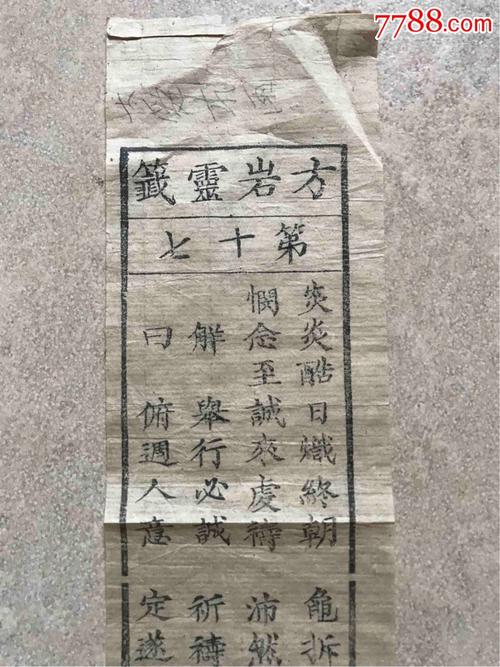 7788.com
方岩靈籤
第十七
炎炎酷日熾終朝 龜拆
憫念至誠來虔禱 沛然
解 舉行必誠 祈禱
曰 俯週人意 定遂